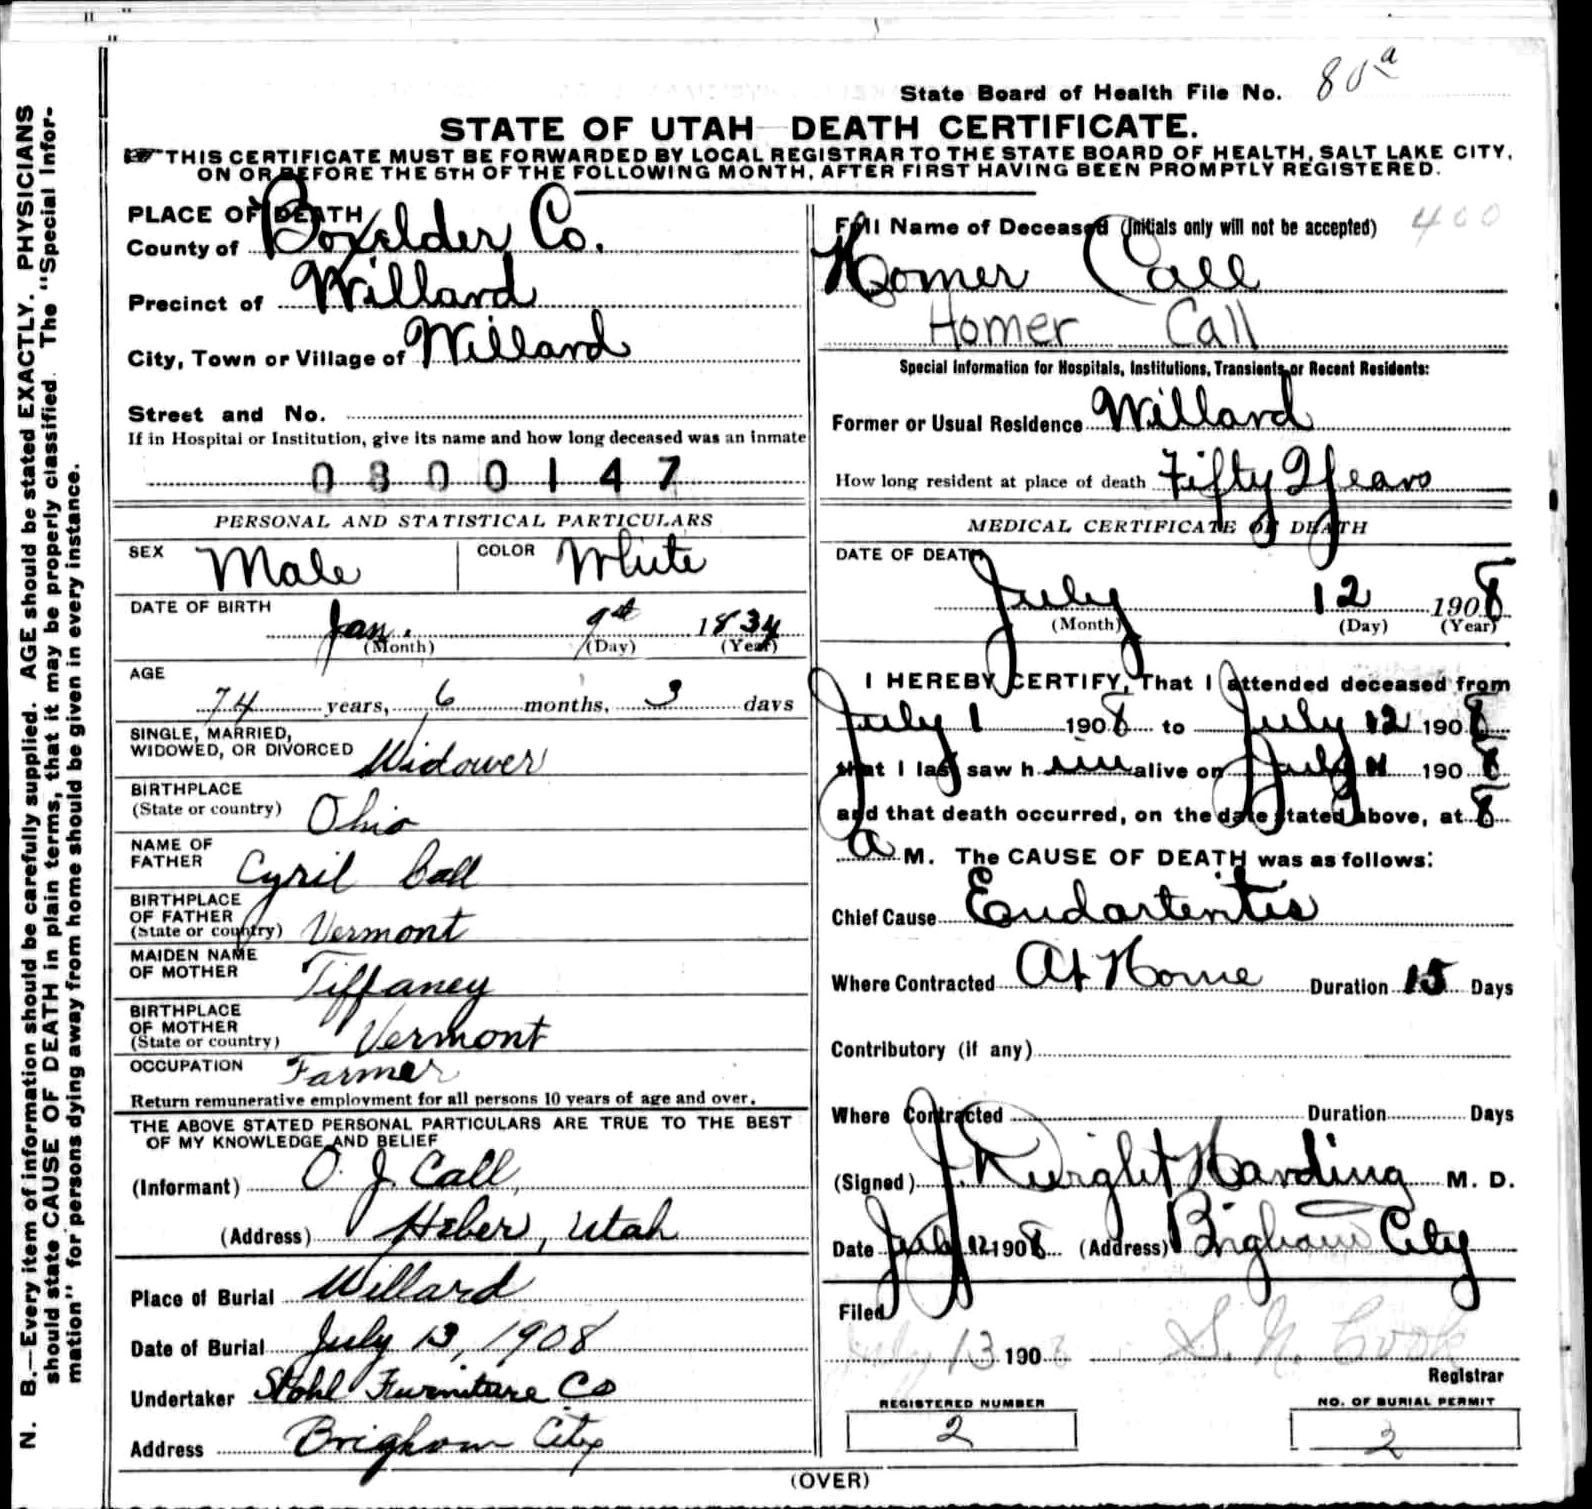 State Board of Health File No. 80a
STATE OF UTAH—DEATH CERTIFICATE.
THIS CERTIFICATE MUST BE FORWARDED BY LOCAL REGISTRAR TO THE STATE BOARD OF HEALTH, SALT LAKE CITY,
ON OR BEFORE THE 5TH OF THE FOLLOWING MONTH, AFTER FIRST HAVING BEEN PROMPTLY REGISTERED.
PLACE OF DEATH
County of Boxelder Co.
Precinct of Willard
City, Town or Village of Willard
Street and No.
If in Hospital or Institution, give its name and how long deceased was an inmate
0300147
PERSONAL AND STATISTICAL PARTICULARS
SEX Male COLOR White
DATE OF BIRTH
Jan. 9th 1834
(Month) (Day) (Year)
AGE
74 years, 6 months, 3 days
SINGLE, MARRIED,
WIDOWED, OR DIVORCED Widower
BIRTHPLACE
(State or country) Ohio
NAME OF
FATHER Cyril Call
BIRTHPLACE
OF FATHER
(State or country) Vermont
MAIDEN NAME
OF MOTHER Tiffaney
BIRTHPLACE
OF MOTHER
(State or country) Vermont
OCCUPATION Farmer
Return remunerative employment for all persons 10 years of age and over.
THE ABOVE STATED PERSONAL PARTICULARS ARE TRUE TO THE BEST
OF MY KNOWLEDGE AND BELIEF
(Informant) O. J. Call,
(Address) Heber, Utah
Place of Burial Willard
Date of Burial July 13, 1908
Undertaker Stohl Furniture Co
Address Brigham City
Full Name of Deceased (Initials only will not be accepted) 400
Homer Call
Homer Call
Special Information for Hospitals, Institutions, Transients or Recent Residents:
Former or Usual Residence Willard
How long resident at place of death Fifty Years
MEDICAL CERTIFICATE OF DEATH
DATE OF DEATH
July 12 1908
(Month) (Day) (Year)
I HEREBY CERTIFY, That I attended deceased from
July 1 1908 to July 12 1908
that I last saw him alive on July 11 1908
and that death occurred, on the date stated above, at 8
a M. The CAUSE OF DEATH was as follows:
Chief Cause Endarteritis
Where Contracted At Home Duration 15 Days
Contributory (if any)
Where Contracted Duration Days
(Signed) J. Dwight Harding M. D.
Date July 12 1908 (Address) Brigham City
Filed
July 13 1908 S. N. Cook
Registrar
REGISTERED NUMBER
2
NO. OF BURIAL PERMIT
2
(OVER)
N. B.—Every item of information should be carefully supplied. AGE should be stated EXACTLY. PHYSICIANS
should state CAUSE OF DEATH in plain terms, that it may be properly classified. The "Special Infor-
mation" for persons dying away from home should be given in every instance.